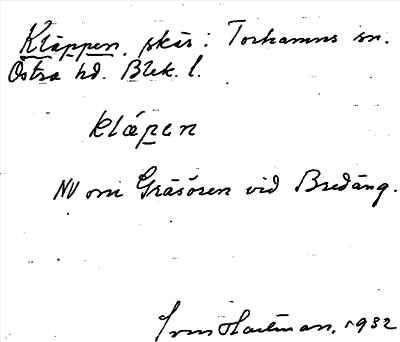 Kläppen, skär: Torhamns sn.
Östra hd. Blek. l.
klápen
NV om Gräsören vid Bredäng.
Hartman, 1932